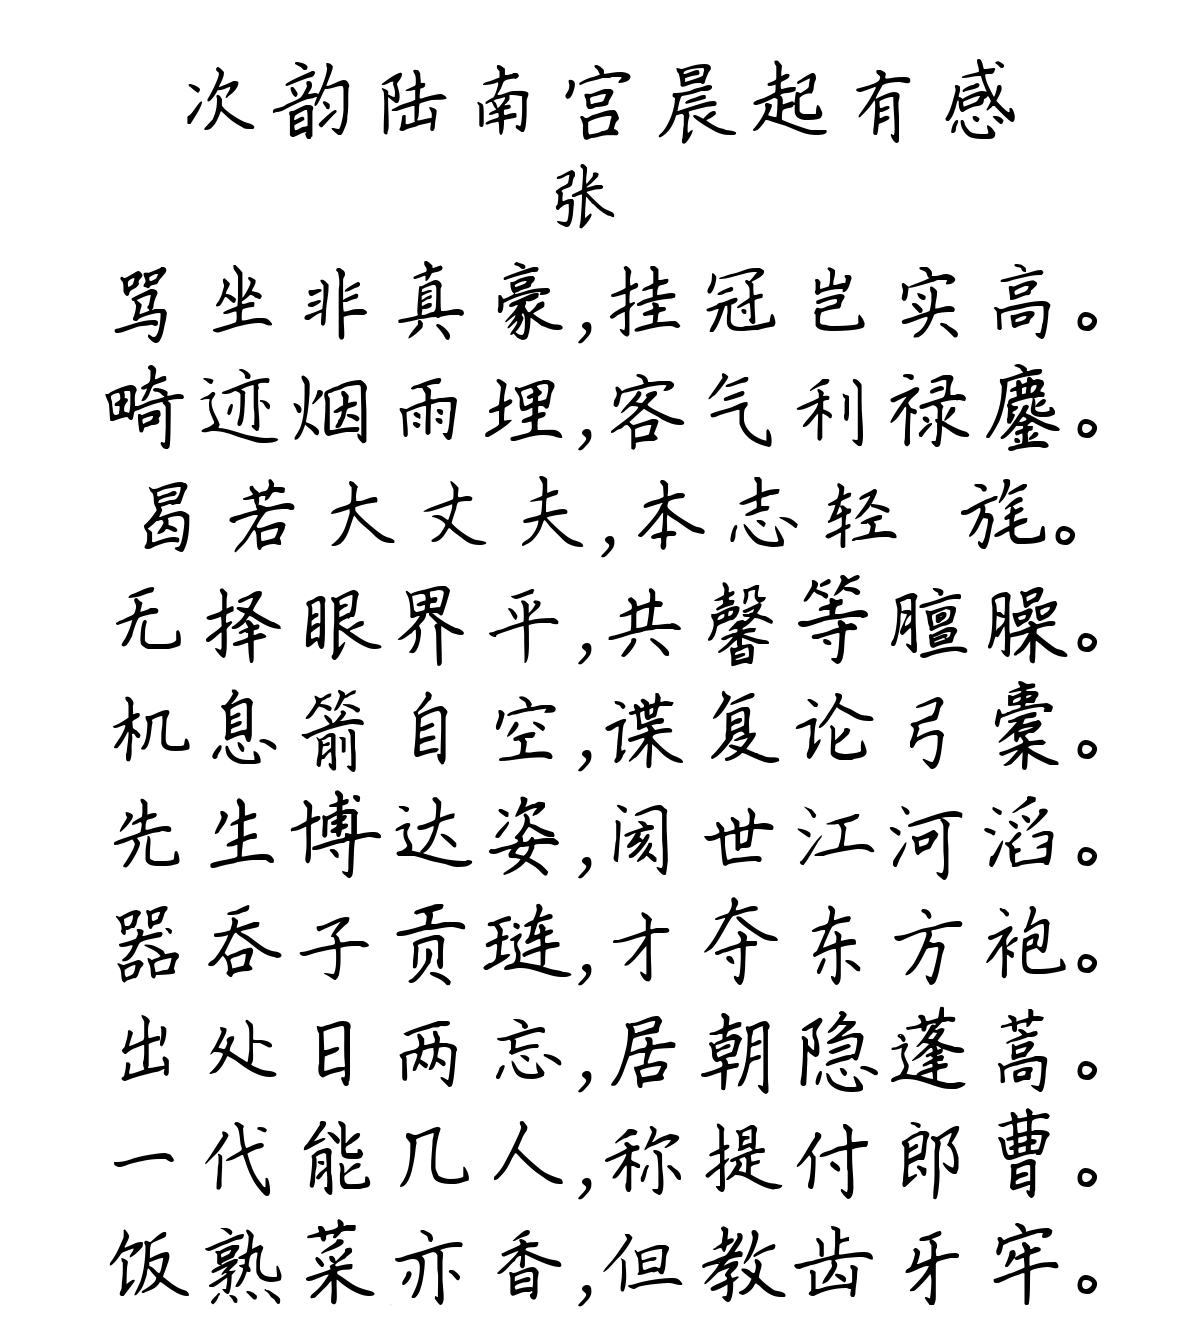 次韵陆南宫晨起有感
张
骂坐非真豪,挂冠岂实高。
畸迹烟雨埋,客气利禄鏖。
曷若大丈夫,本志轻 旄。
无择眼界平,共馨等膻臊。
机息箭自空,谍复论弓櫜。
先生博达姿,阂世江河滔。
器吞子贡琏,才夺东方袍。
出处日两忘,居朝隐蓬蒿。
一代能几人,称提付郎曹。
饭熟菜亦香,但教齿牙牢。